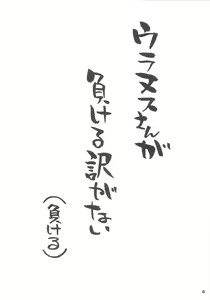 ウラヌスさんが
負ける訳がない
（負ける）